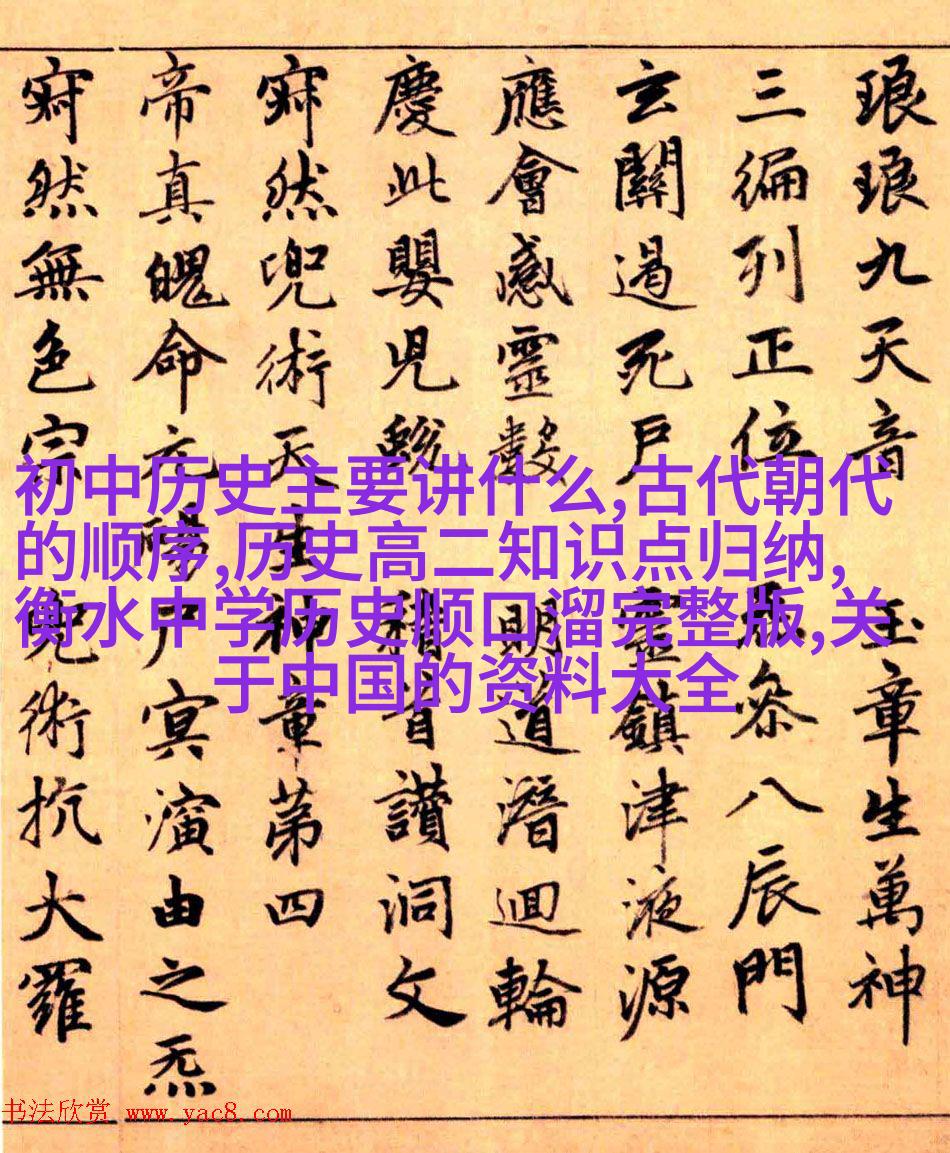 琅琅九天音 玉章生萬神
三徧列正位 叅八辰門
玄關遏死戶 靈鎮津液源
應會感靈數 明道潛迴輪
慶此嬰兒 稽首讚洞文
寂然兜術天生神章第四
帝真魄命元陽尸冥演由之炁
寂然無色宗 兜術抗大羅
初中历史主要讲什么,古代朝代
的顺序,历史高二知识点归纳,
衡水中学历史顺口溜完整版,关
于中国的资料大全
书法欣赏 www.yac8.com